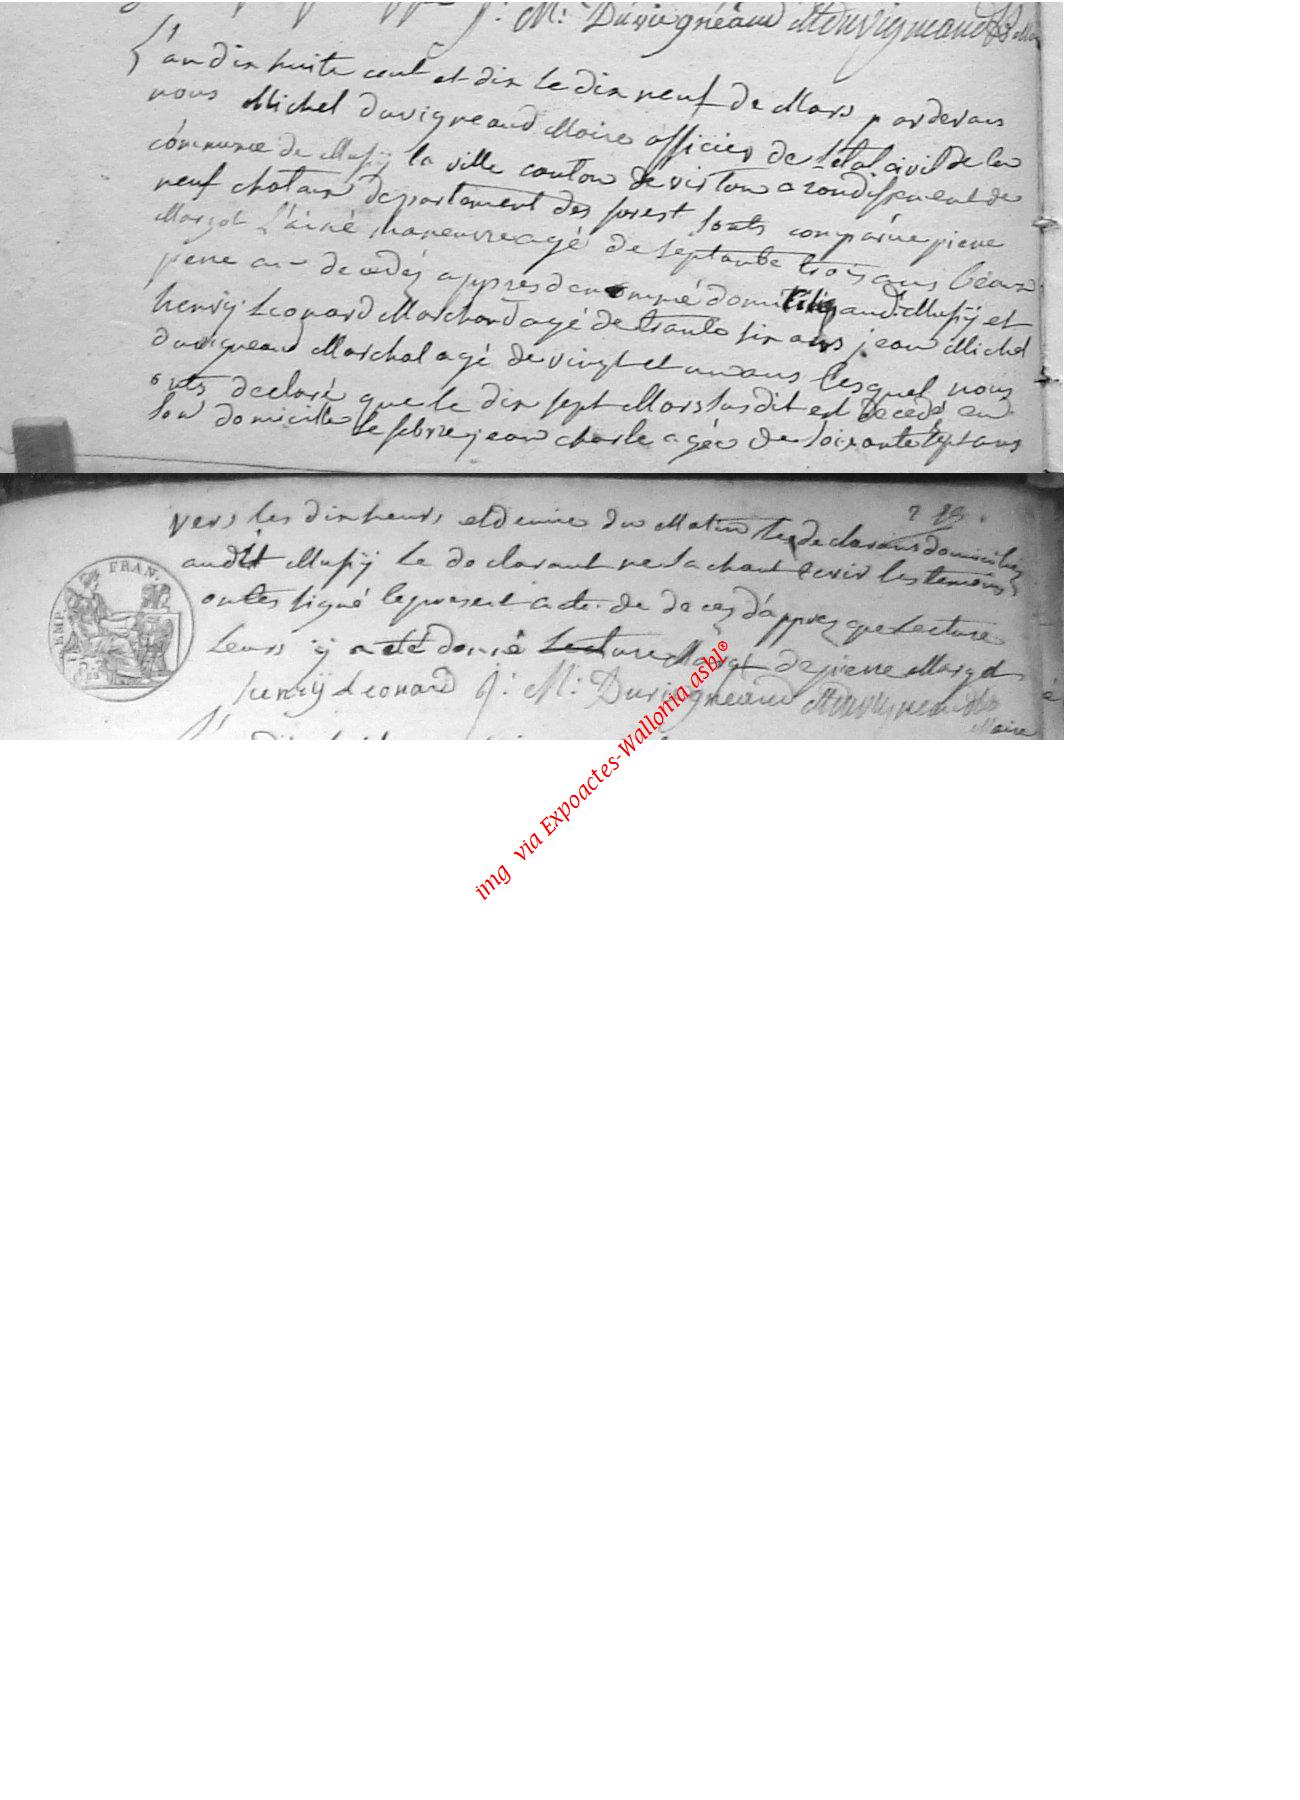 J: M: Duvigneaud MDuvigneaud
L'an dix huite cent et dix le dix neuf de Mars pardevans
nous Michel duvigneaud Maire officier de l'état civil de la
commune de Mussÿ la ville canton de virton arondissement de
neuf chataux departement des forest sonts comparue piere
Margot L'ainé maneuvre agé de septante trois ans beaux
pere au decedez appres denommé domicilié audit Mussÿ et
henrÿ Leonard Marchand agé de trante six ans jean Michel
duvigneaud Marchal agé de vingt et un ans lesquel nous
onts declaré que le dix sept Mars susdit est decedé en
son domicille le febvre jean charle agée de soixante sept ans
vers les dix heurs et demie du Matin les declarans domiciliez
audit Mussÿ le declarant ne sachant ecrir les temoins
ontes signé le present acte de deces d'apprez que Lecture
Leurs ÿ a eté donné Lecture Marque de pierre Margot
henrÿ Leonard J: M: Duvigneaud MDuvigneaud
Maire
EMP. FRAN.
img via Expoactes-Wallonia asbl®